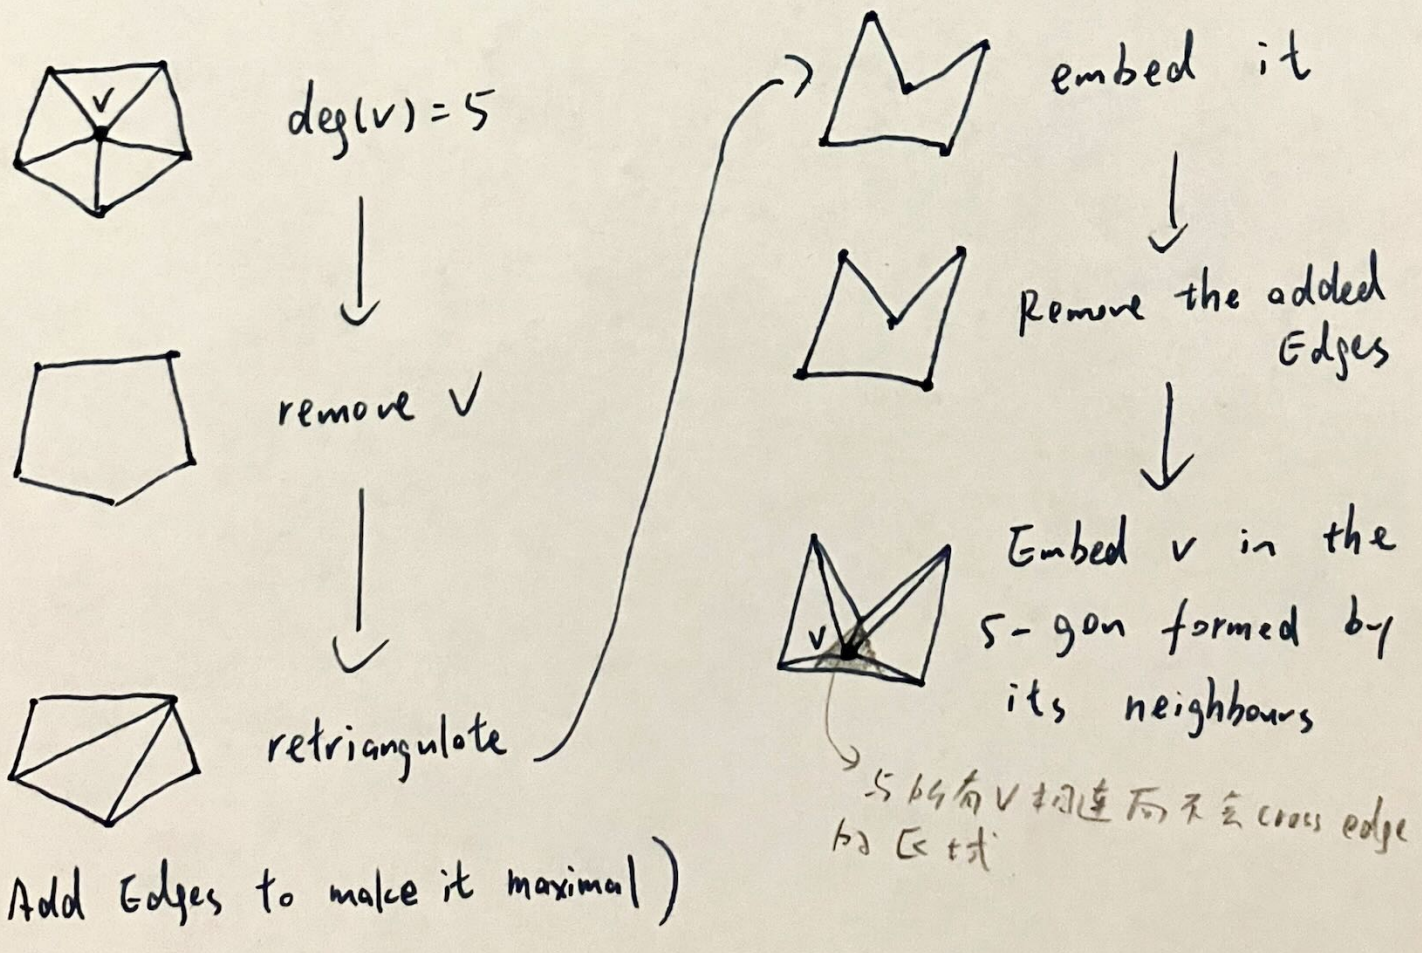 v
deg(v) = 5
remove V
retriangulate
Add Edges to make it maximal)
embed it
Remove the added
Edges
Embed v in the
5-gon formed by
its neighbours
v
与所有V相连而不会cross edge
的区域